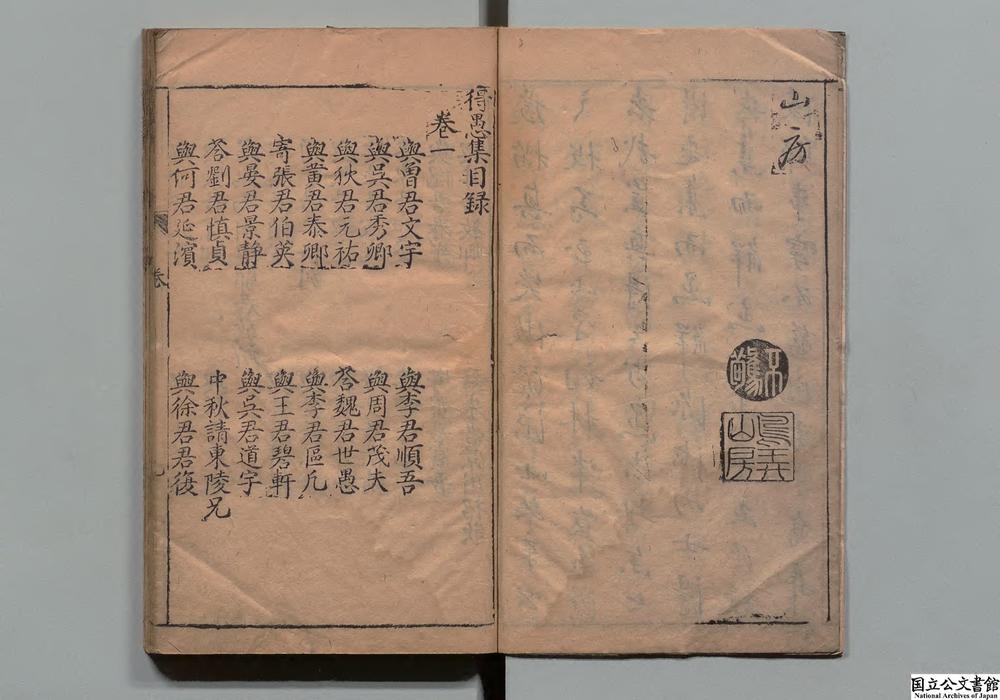 山房
得愚集目録
卷一
與曾君文宇
與李君順吾
與吳君秀卿
與周君茂夫
與狄君元祐
答魏君世愚
與黃君泰卿
與李君區凡
寄張君伯英
與王君碧軒
與晏君景靜
與吳君道宇
答劉君慎貞
中秋請東陵兄
與何君延濱
與徐君君復
卷
國立公文書館
National Archives of Japan